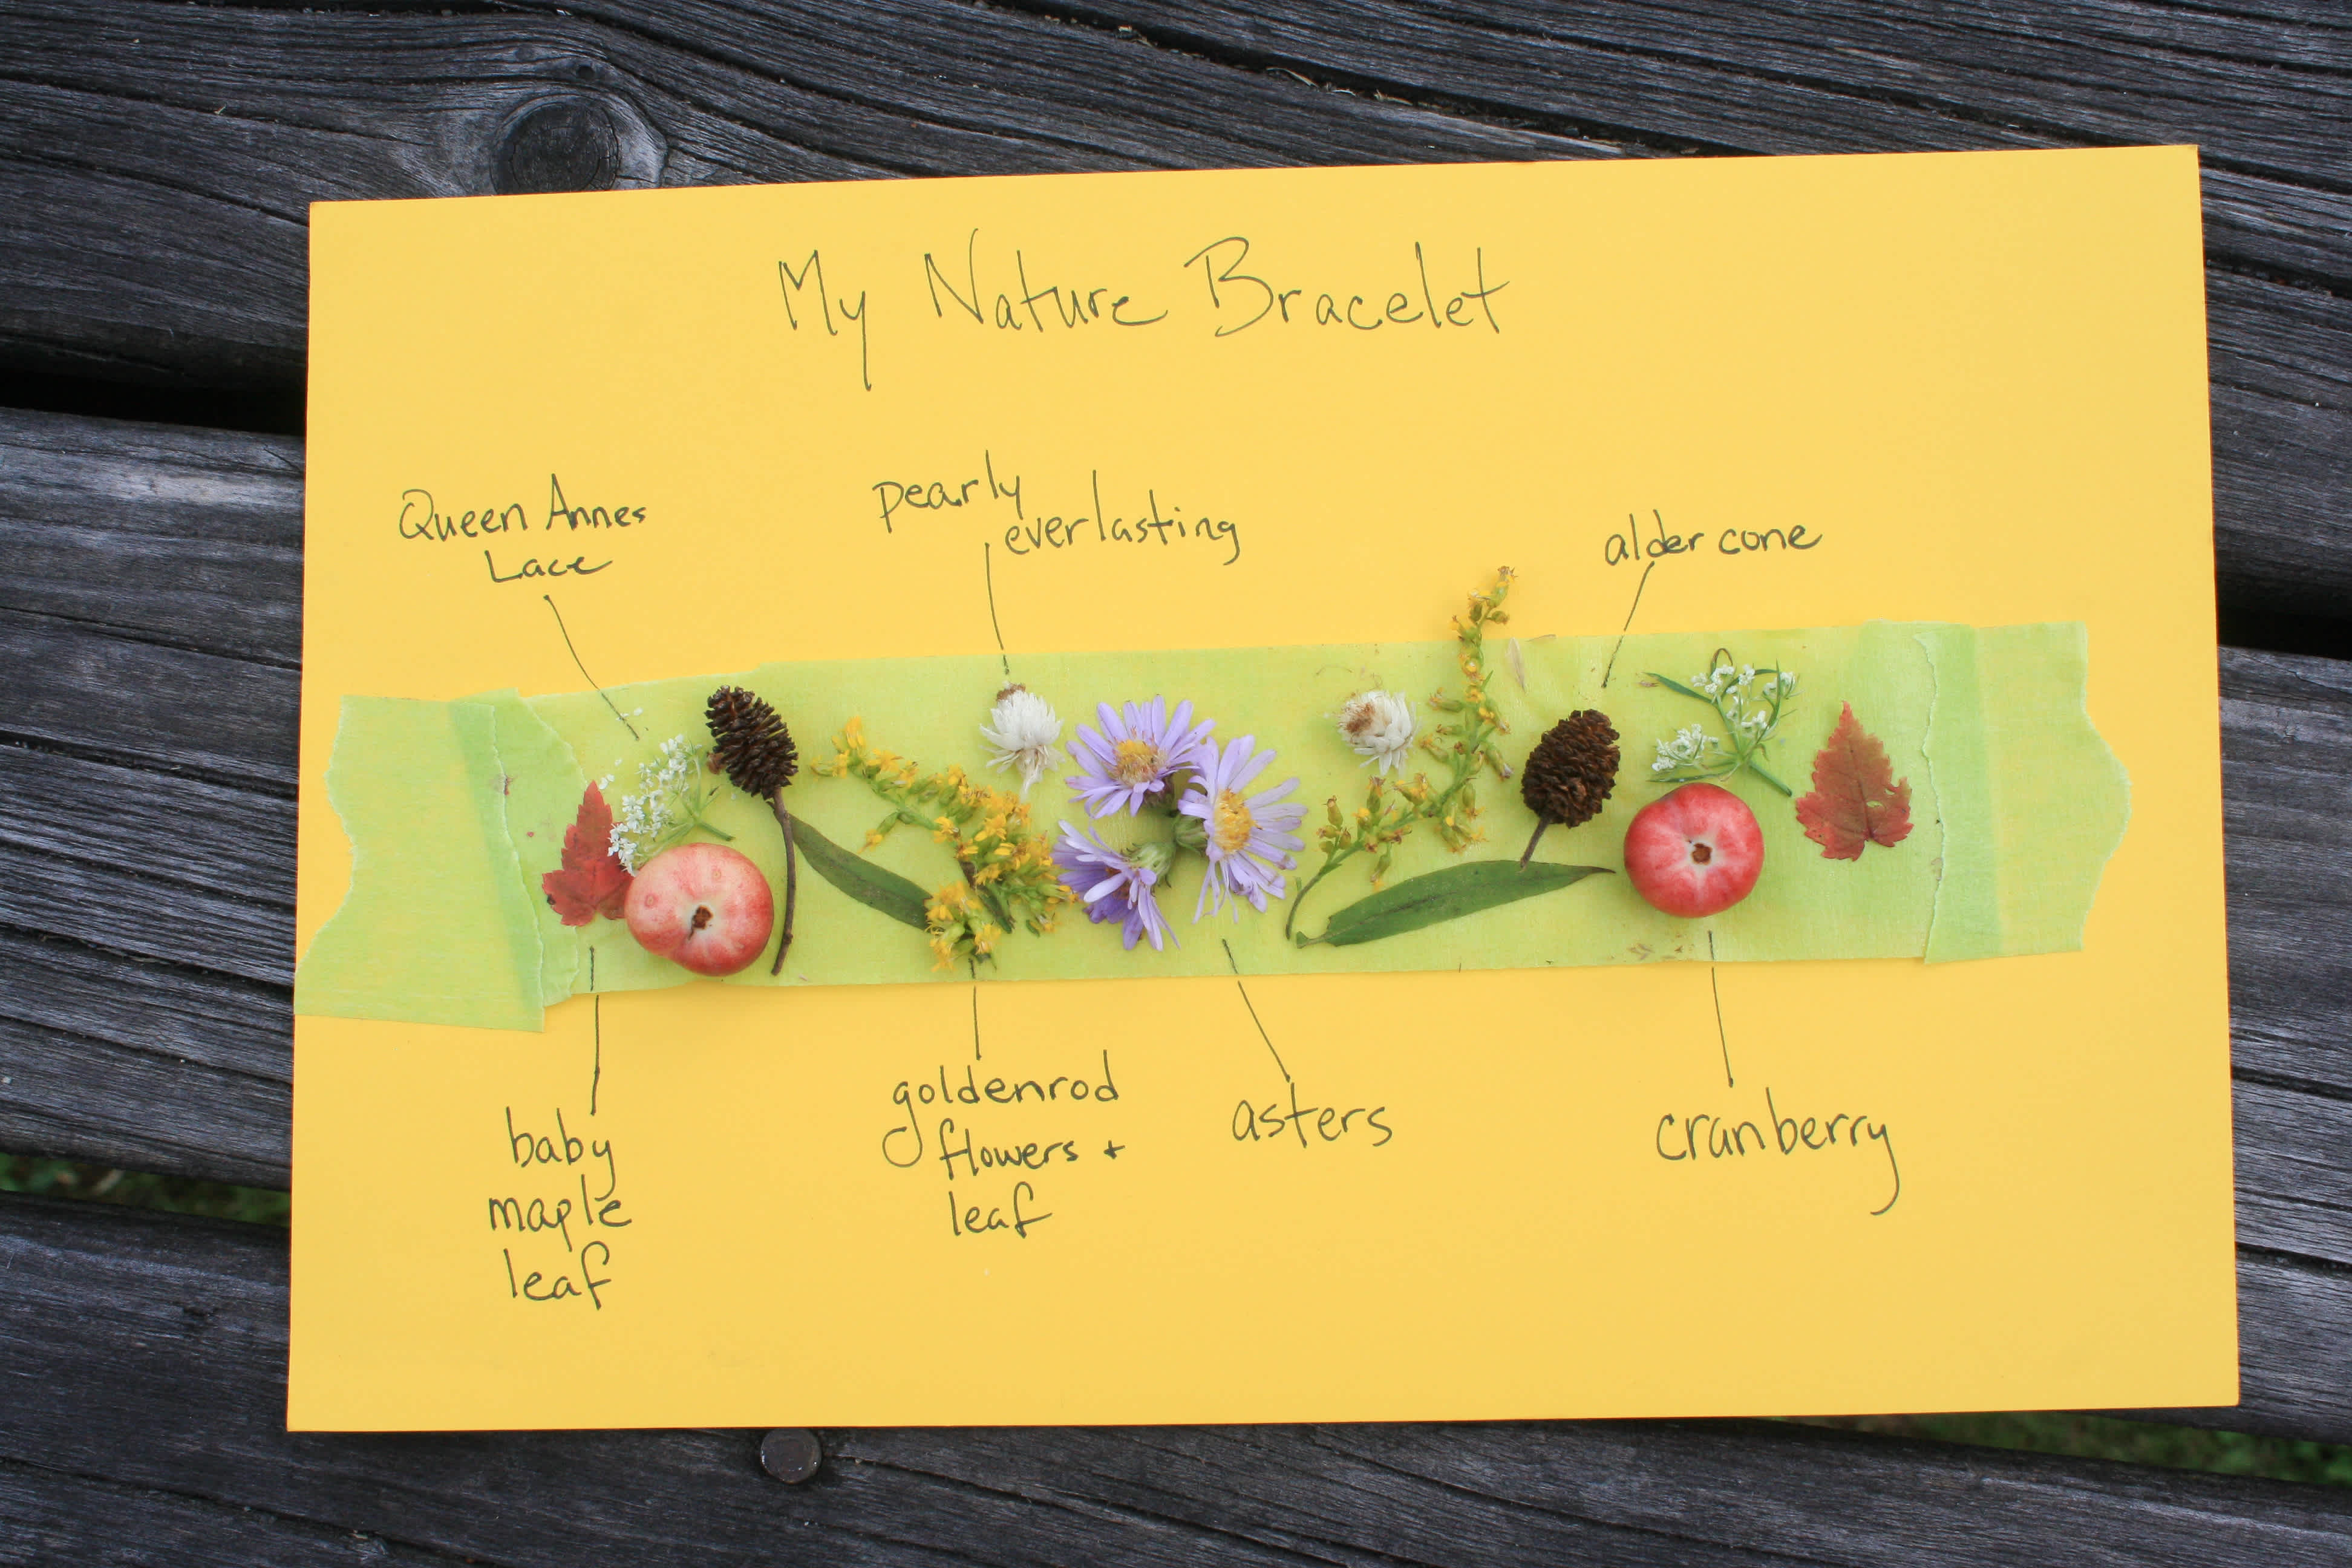 My Nature Bracelet
Queen Annes
Lace
pearly
everlasting
alder cone
baby
maple
leaf
goldenrod
flowers +
leaf
asters
cranberry